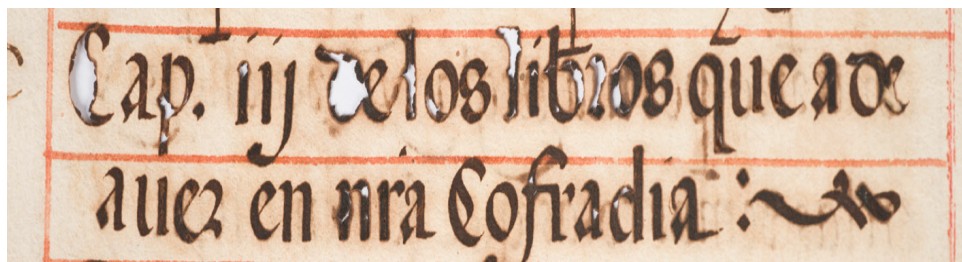 Cap. iij de los libros que a de
auer en nr̃a Cofradia :~